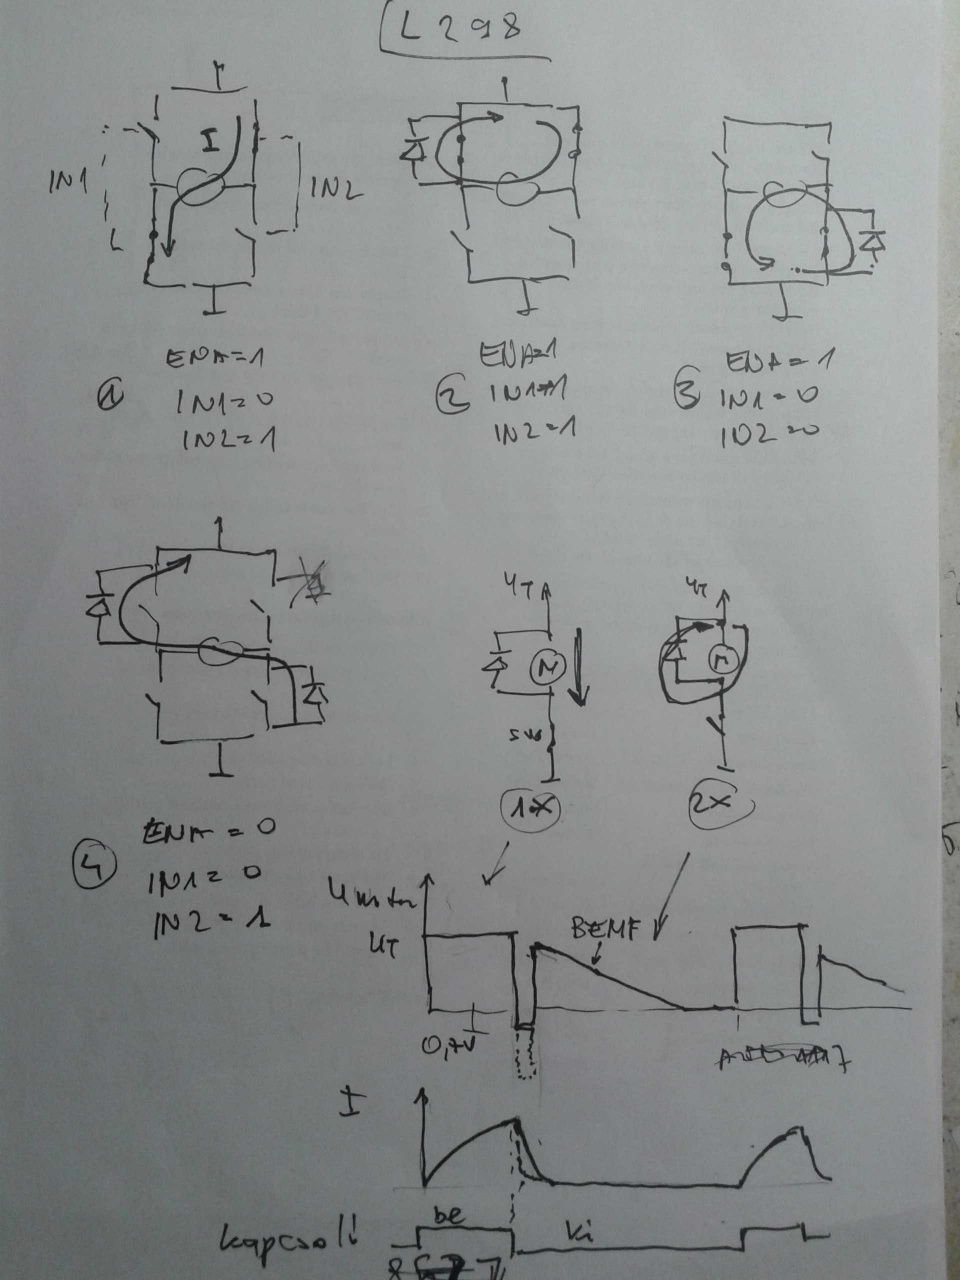 L298
I
IN1
IN2
ENA=1
① IN1=0
IN2=1
ENA=1
② IN1=1
IN2=1
ENA=1
③ IN1=0
IN2=0
ENA=0
④ IN1=0
IN2=1
UT
M
1X
UT
M
2X
Umotor
UT
BEMF
0,7V
I
kapcsoló
be
ki